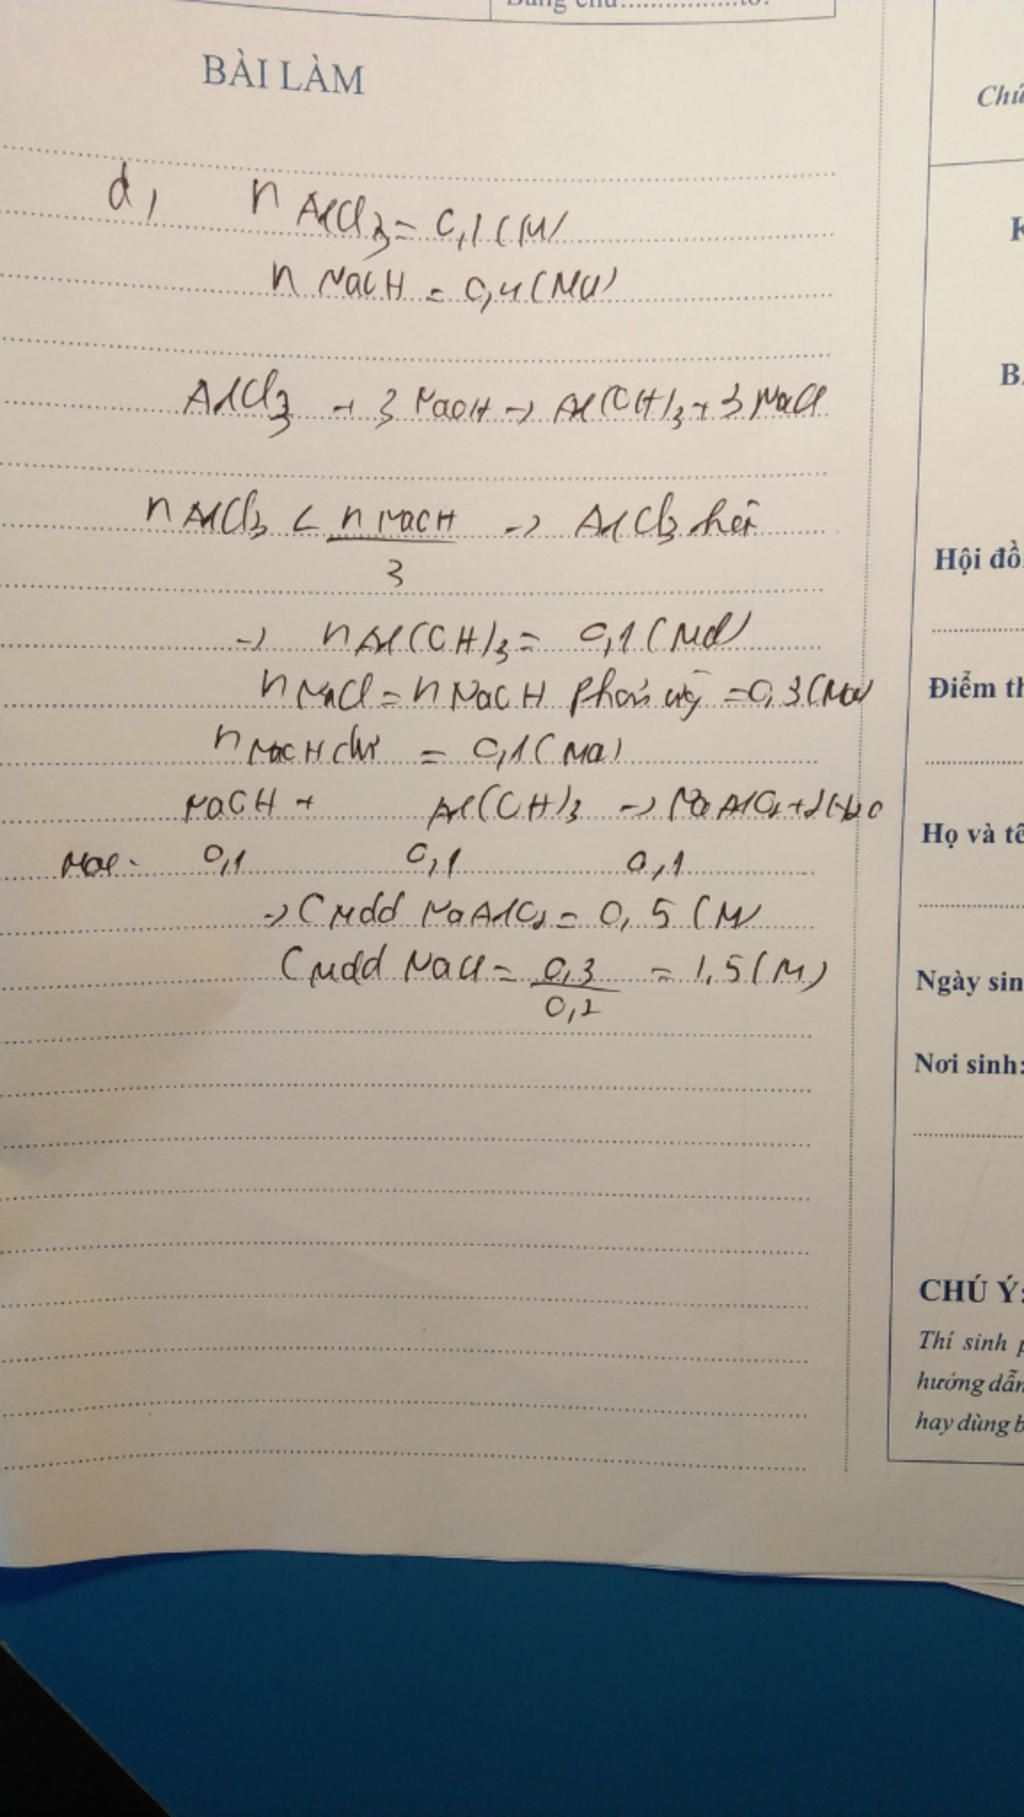 Bằng chữ.................tờ.
BÀI LÀM
d, n AlCl3 = 0,1 (M)
n NaOH = 0,4 (Mol)
AlCl3 + 3 NaOH → Al(OH)3 + 3 NaCl
n AlCl3 < n NaOH / 3 → AlCl3 hết
→ n Al(OH)3 = 0,1 (Mol)
n NaCl = n NaOH phản ứng = 0,3 (Mol)
n NaOH dư = 0,1 (Mol)
NaOH + Al(OH)3 → NaAlO2 + 2H2O
Mol: 0,1 0,1 0,1
→ CMdd NaAlO2 = 0,5 (M)
CMdd NaCl = 0,3 / 0,2 = 1,5 (M)
Hội đồ
Điểm th
Họ và tê
Ngày sin
Nơi sinh:
CHÚ Ý:
Thí sinh p
hướng dẫn
hay dùng b